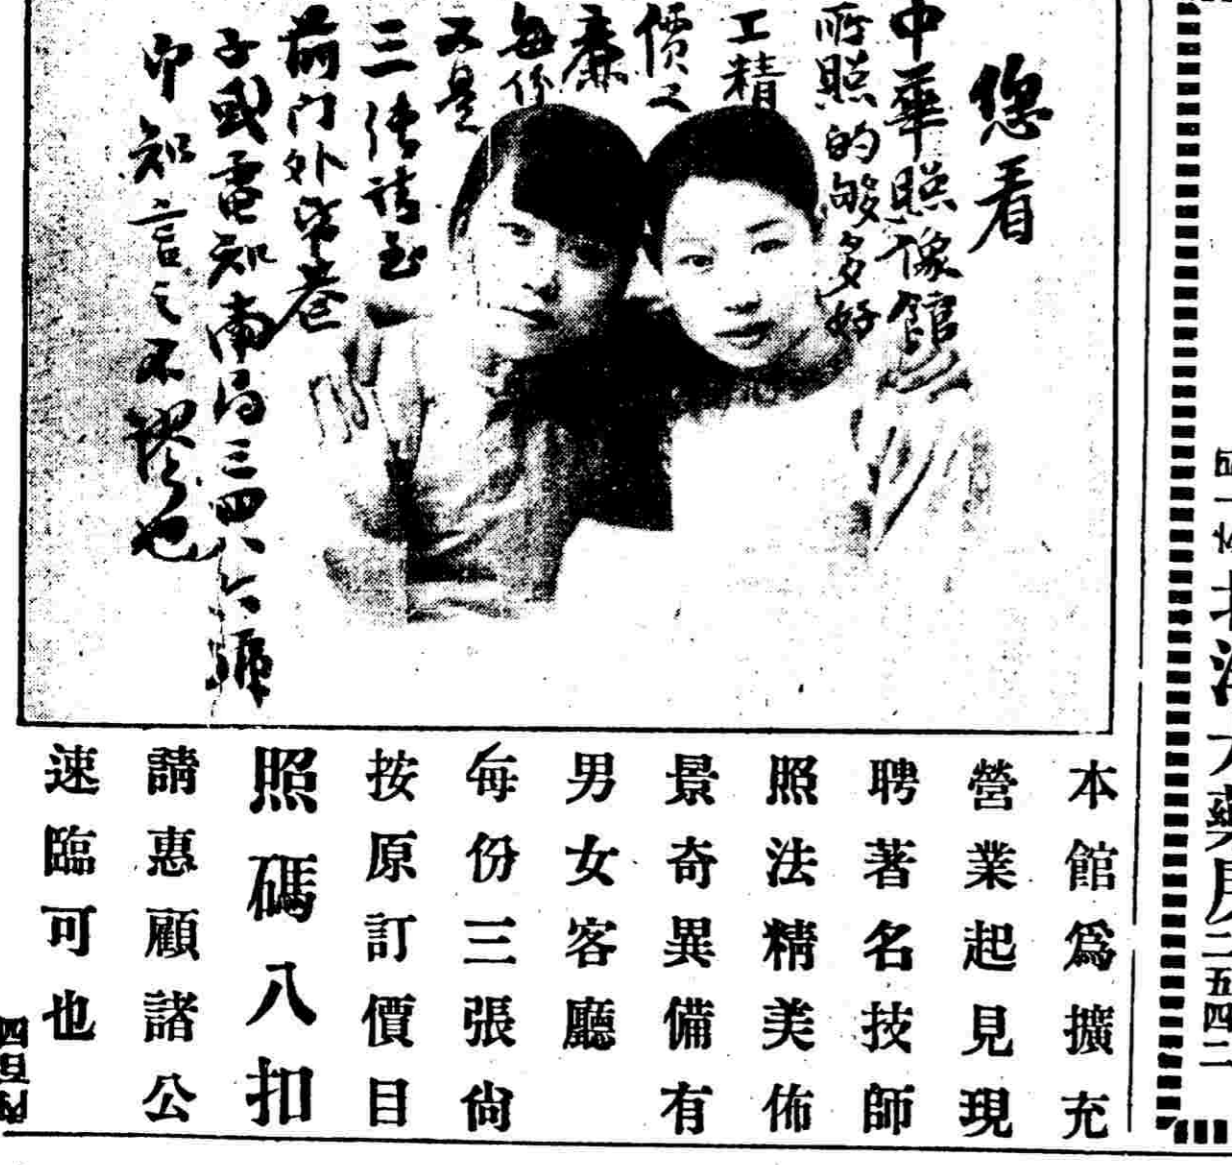 您看
中華照像館
所照的够多好
工精
價又
廉
每份
又是
三张請至
前门外
子或電知南局三四八六號
即知言之不謬也
本館爲擴充
營業起見現
聘著名技師
照法精美佈
景奇異備有
男女客廳
每份三張尙
按原訂價目
照碼八扣
請惠顧諸公
速臨可也